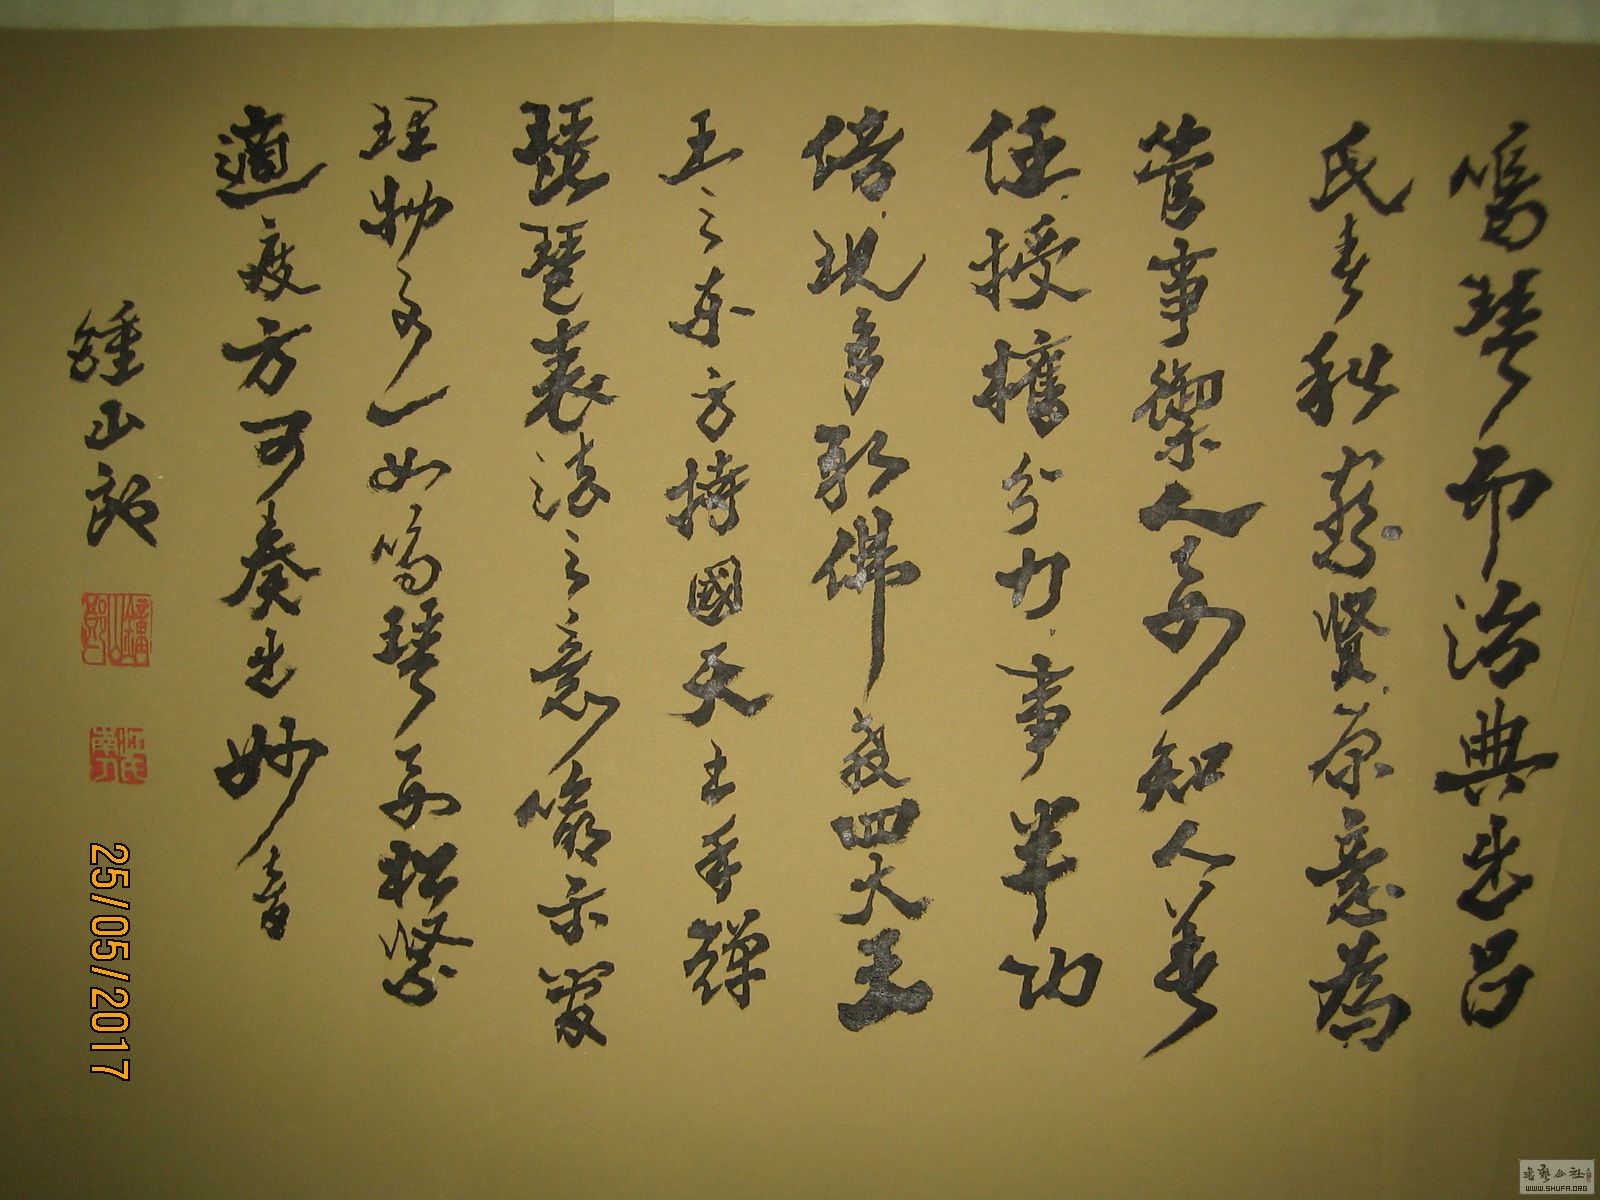 鳴琴而治典出呂
氏春秋察賢原意為
管事禦人要知人善
任授權分力事半功
倍現多取佛教四大天王
王之東方持國天王手彈
琵琶表法之意喻示管
理物文一如鳴琴要松緊
適度方可奏出妙音
鍾山郎
25/05/2017
WWW.SHUFA.ORG